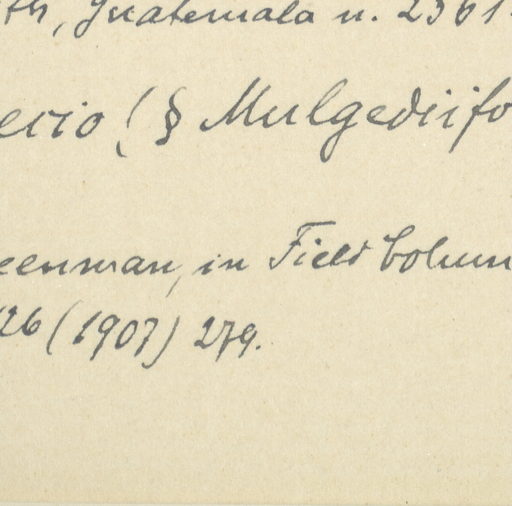 th, Guatemala n. 2361.
ecio (§ Mulgediifo
eenman, in Field Colum
126 (1907) 279.